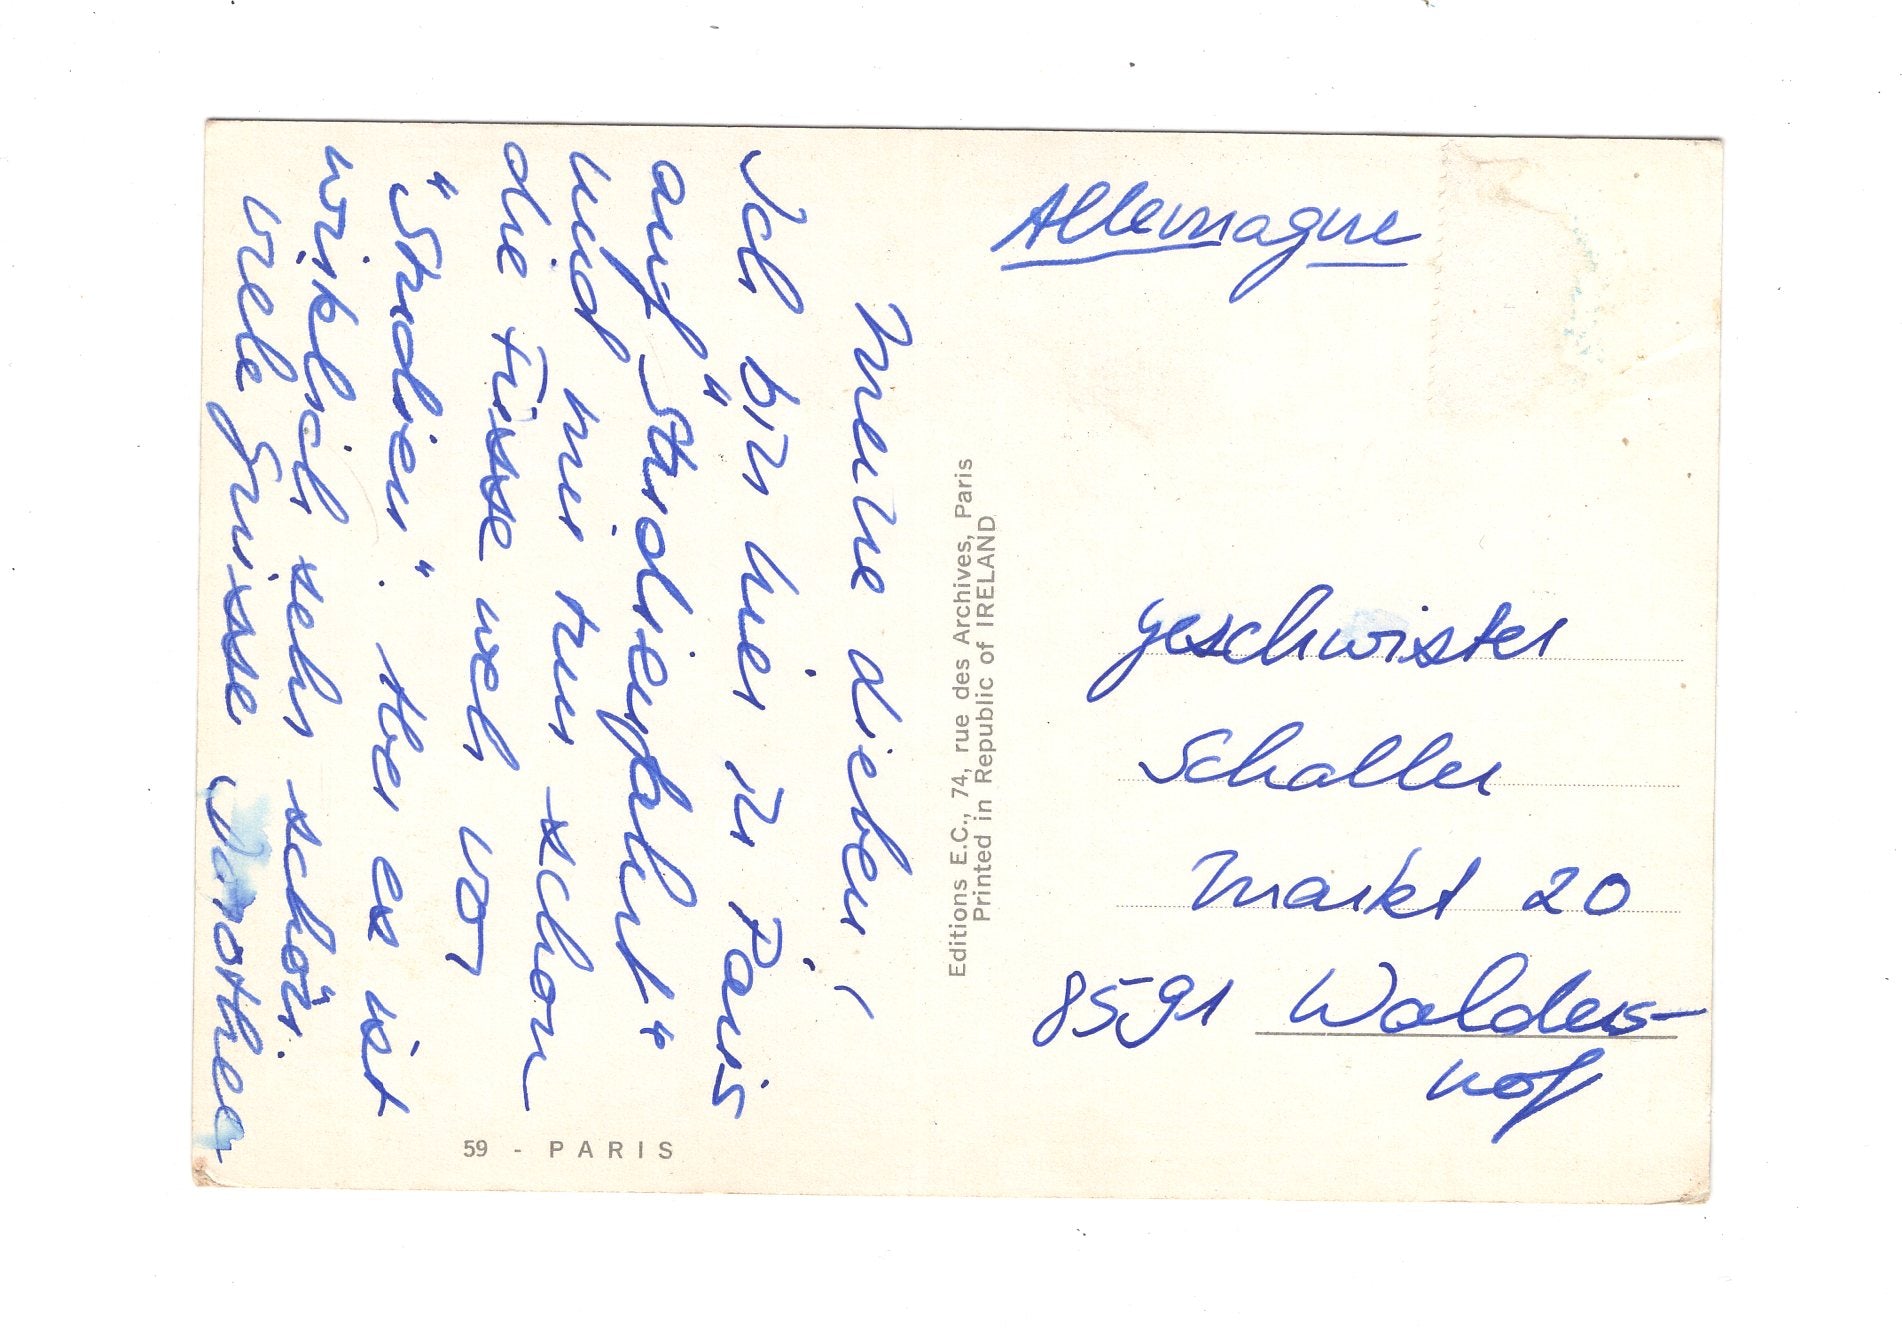 Meine Lieben!
Ich bin hier in Paris
auf "Studienfahrt"
und mir tun schon
die Füsse weh vor
"Studien". Aber es ist
wirklich sehr schön.
Viele Grüsse Dorothea
59 - PARIS
Editions E.C., 74, rue des Archives, Paris
Printed in Republic of IRELAND
Allemagne
Geschwister
Schaller
Markt 20
8591 Walders-
hof